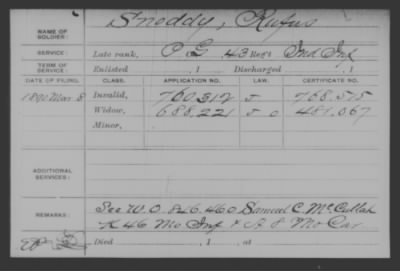 NAME OF SOLDIER: Snoddy, Rufus
SERVICE: Late rank, Co G, 43 Reg't Ind Inf
TERM OF SERVICE: Enlisted , 1 Discharged , 1
DATE OF FILING. CLASS. APPLICATION NO. LAW. CERTIFICATE NO.
1890 Mar 8 Invalid, 760.312 J 768.515
Widow, 688.221 J 481.067
Minor,
ADDITIONAL SERVICES:
REMARKS: See W.O. 826.460 Samuel C. McCullah
K 46 Mo Inf & A 8 Mo Cav
Died , 1 , at